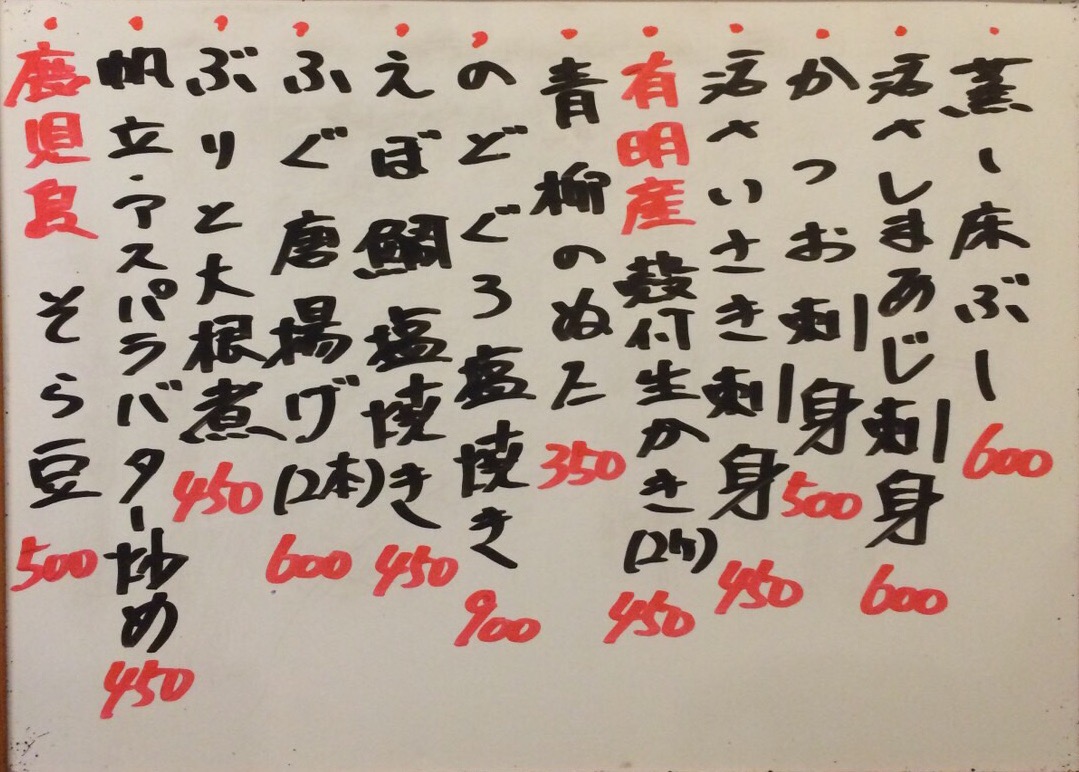 蒸し床ぶし 600
活きしまあじ刺身 600
かつお刺身 500
活きいさき刺身 450
有明産 殻付生かき(2ケ) 450
青柳のぬた 350
のどぐろ塩焼き 900
えぼ鯛塩焼き 450
ふぐ唐揚げ(2本) 600
ぶりと大根煮 450
帆立・アスパラバター炒め 450
鹿児島 そら豆 500